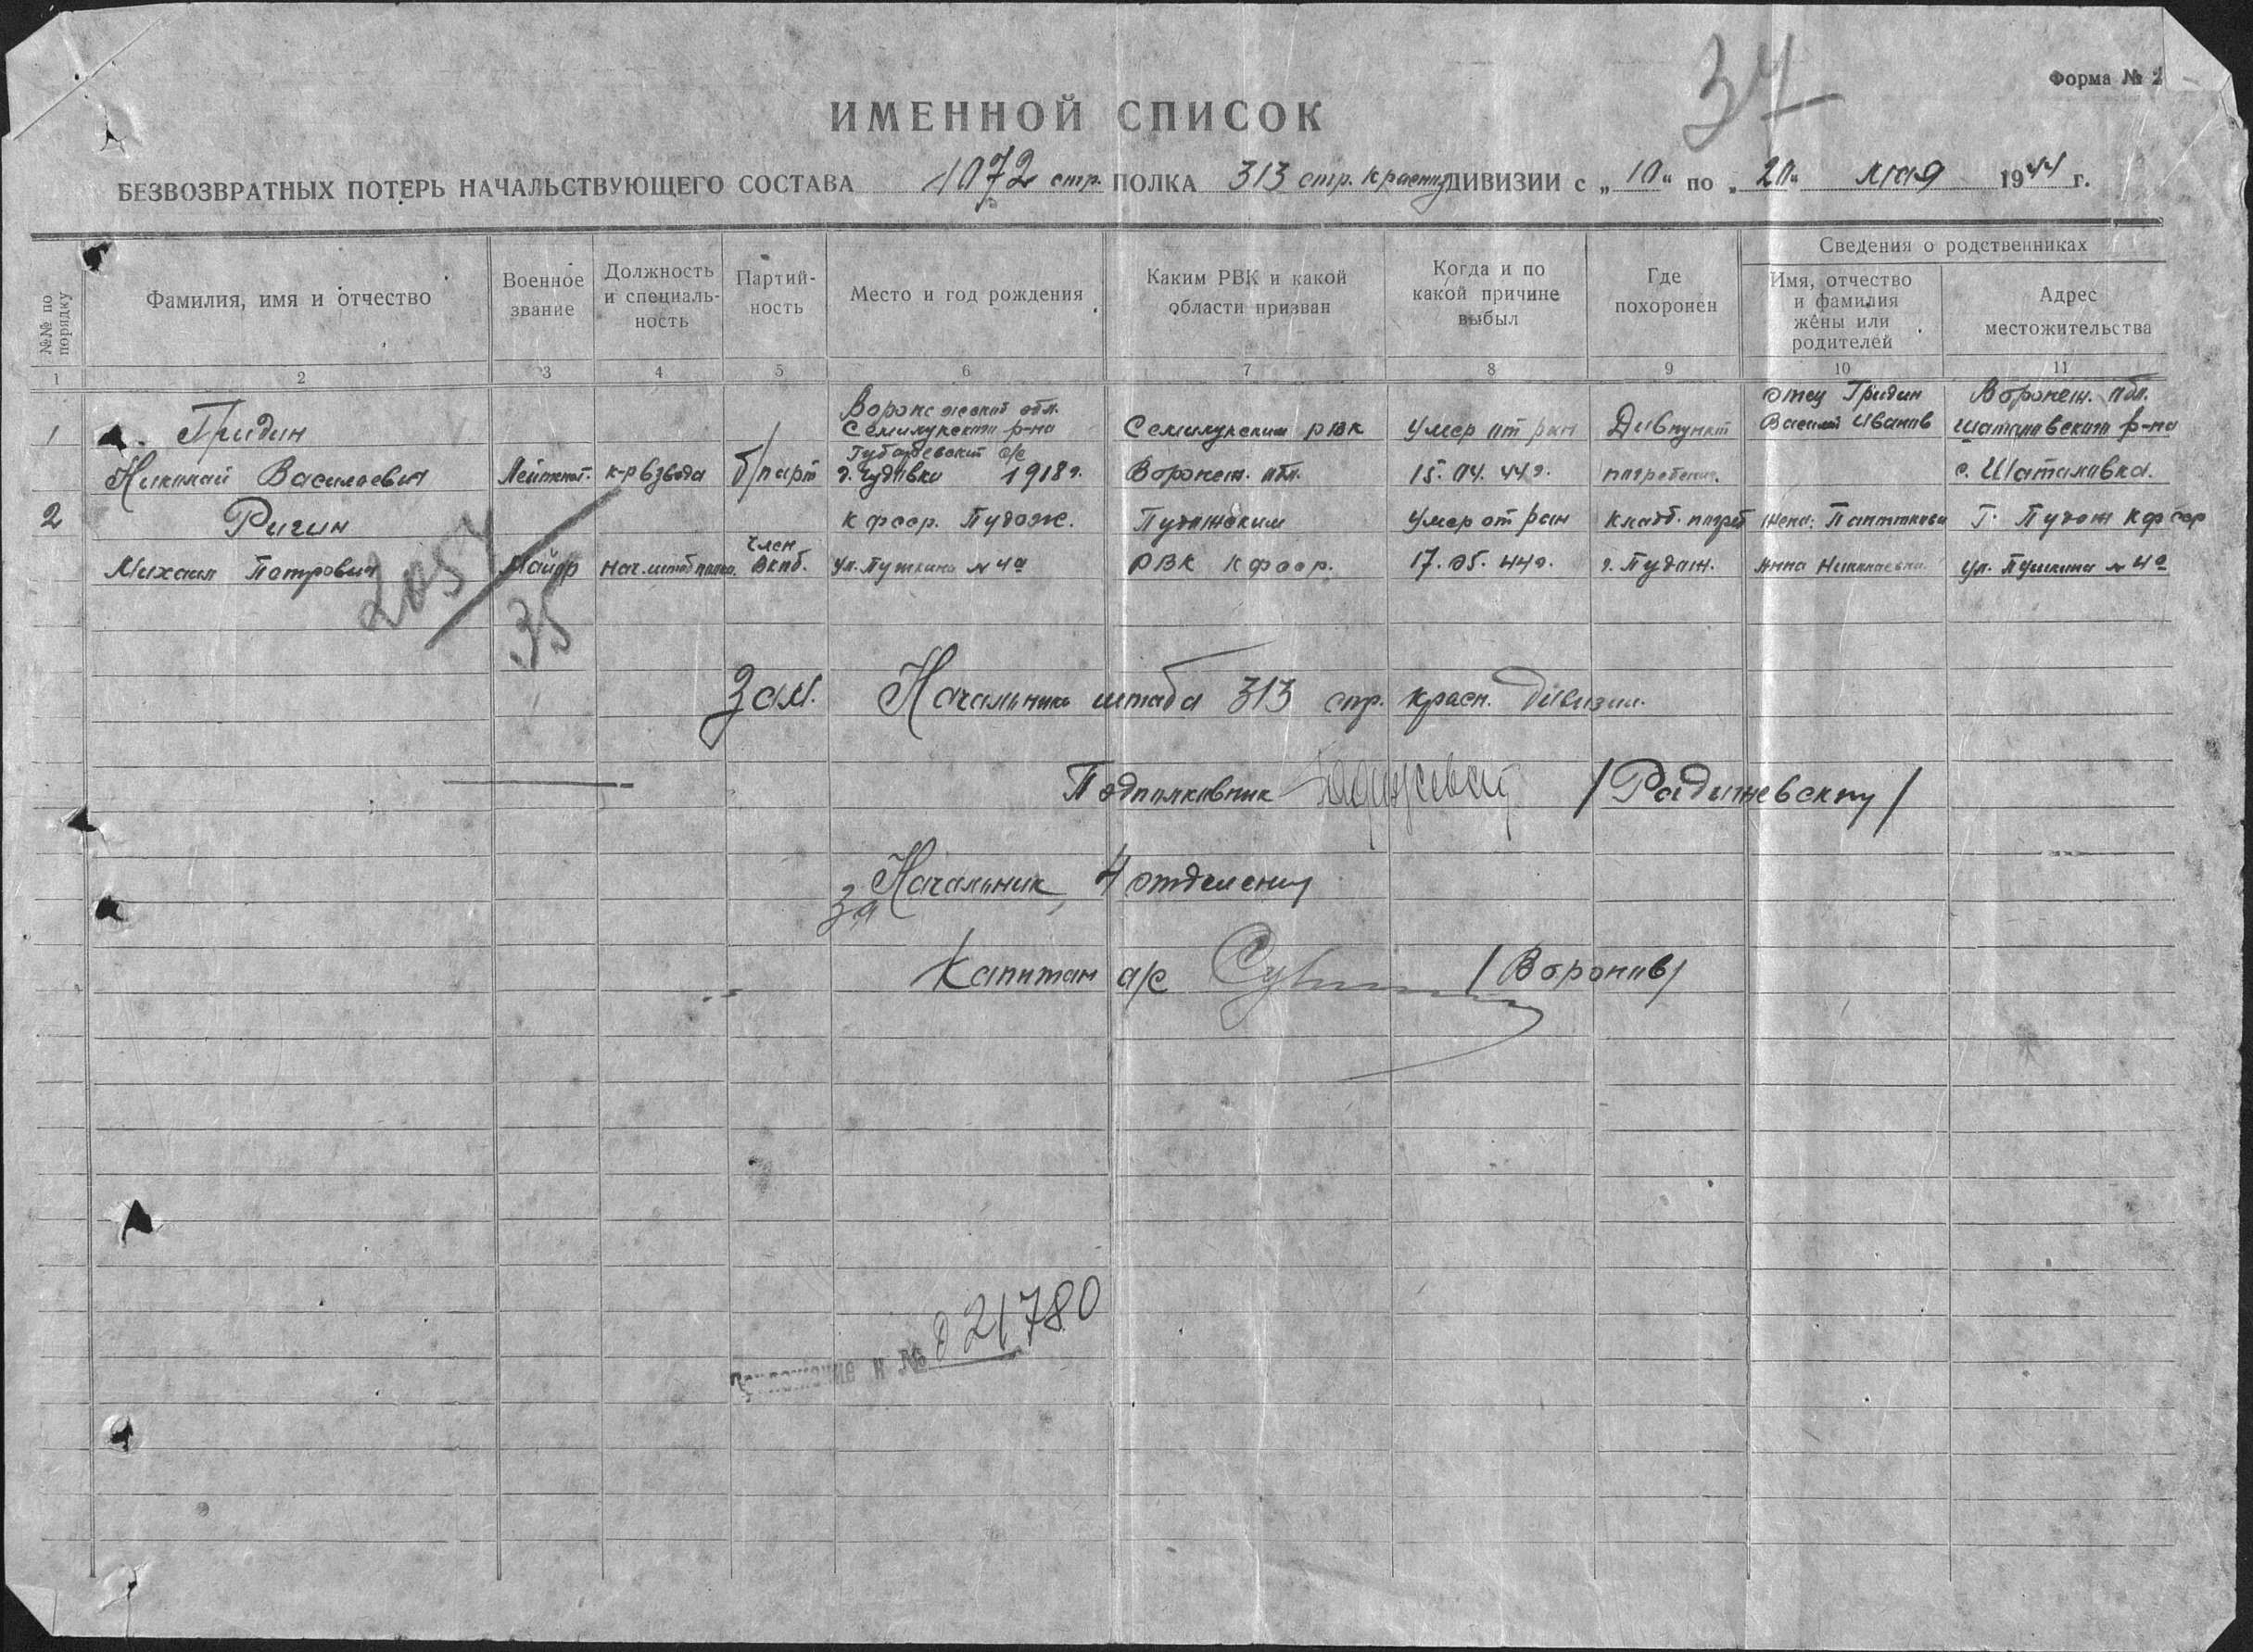 34
Форма № 2
ИМЕННОЙ СПИСОК
БЕЗВОЗВРАТНЫХ ПОТЕРЬ НАЧАЛЬСТВУЮЩЕГО СОСТАВА 1072 стр. ПОЛКА 313 стр. красн ДИВИЗИИ с „10“ по „20“ мая 1944 г.
№№ по порядку
Фамилия, имя и отчество
Военное звание
Должность и специаль-ность
Партий-ность
Место и год рождения
Каким РВК и какой области призван
Когда и по какой причине выбыл
Где похоронен
Сведения о родственниках
Имя, отчество и фамилия жены или родителей
Адрес местожительства
1 2 3 4 5 6 7 8 9 10 11
Воронежской обл. отец Гридин Воронеж. обл.
1 Гридин Семилукского р-на Семилукским РВК Умер от ран Дивпункт Василий Иванов Шаталовского р-на
Николай Василевич Лейтент. к-р взвода б/парт 1918г. Воронеж. обл. 15.04.44г. погребения. с. Шаталовка.
2 Ригин кфсср. Пудож. Пудожским Умер от ран Кладб. погреб жена: Г. Пудож кфсср
Михаил Петрович Майор Нач. штаб полка. член Вкпб. ул. Пушкина № 4а РВК Кфсср. 17.05.44г. г. Пудож. Анна Николаевна. ул. Пушкина № 4а
2057
35
Зам. Начальник штаба 313 стр. красн. дивизии.
Подполковник
За Начальник 4 отделения
Капитан а/с /Воронов/
Приложение к № 021780